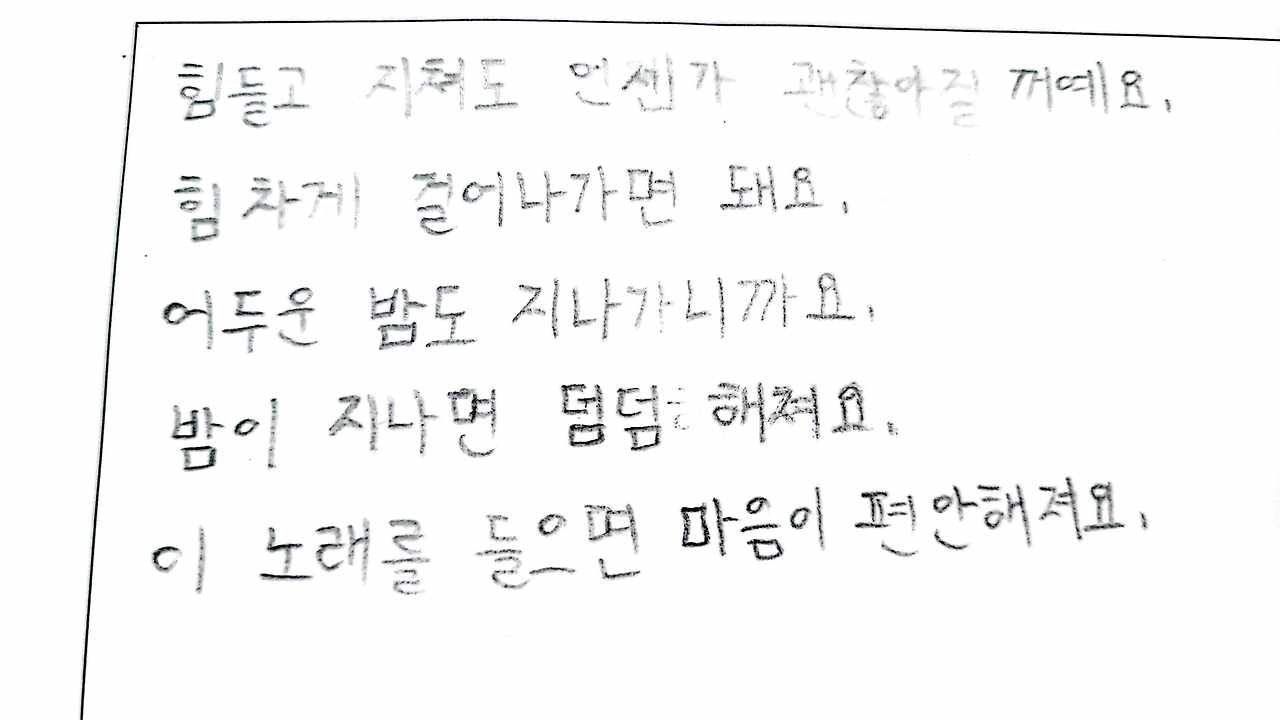 힘들고 지쳐도 언젠가 괜찮아질 꺼예요.
힘차게 걸어나가면 돼요.
어두운 밤도 지나가니까요.
밤이 지나면 덤덤해져요.
이 노래를 들으면 마음이 편안해져요.